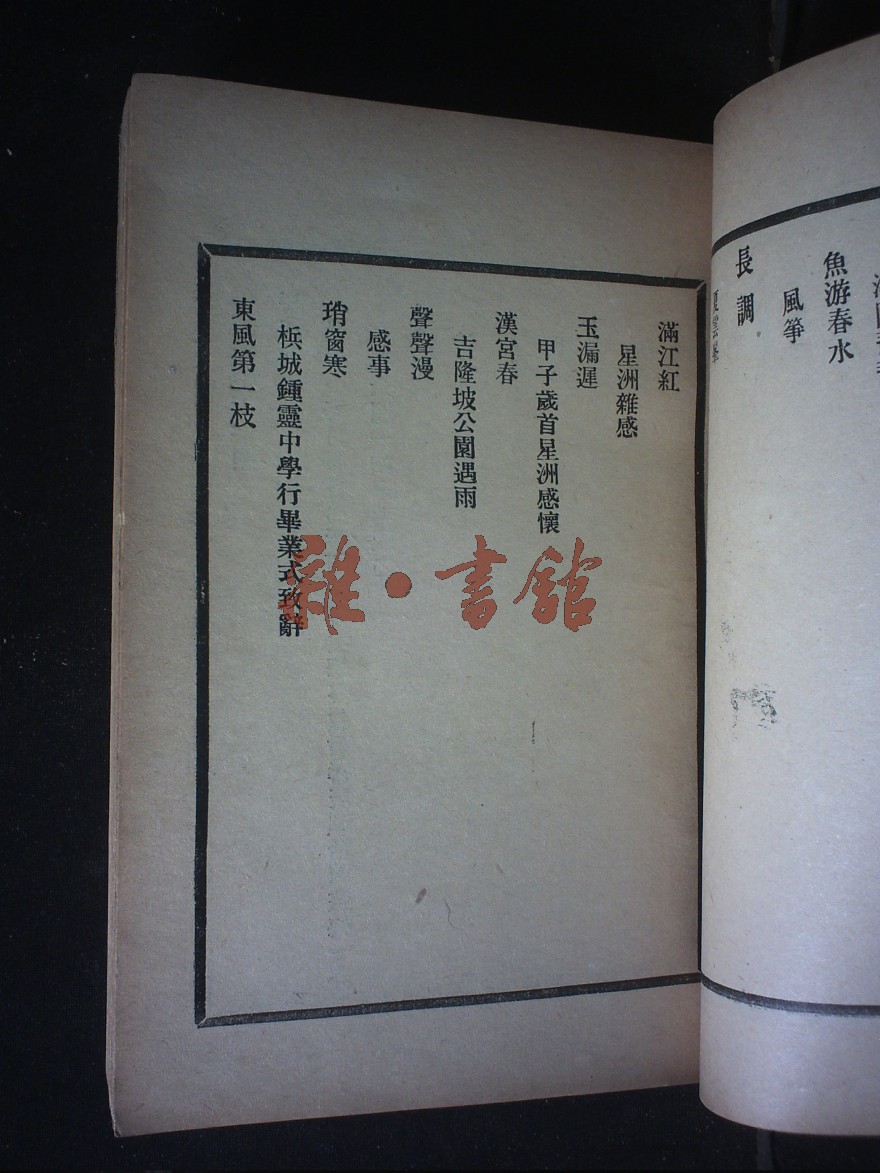 魚游春水
風箏
長調
滿江紅
星洲雜感
玉漏遲
甲子歲首星洲感懷
漢宮春
吉隆坡公園遇雨
聲聲漫
感事
瑣窗寒
梹城鍾靈中學行畢業式致辭
東風第一枝
雜·書館